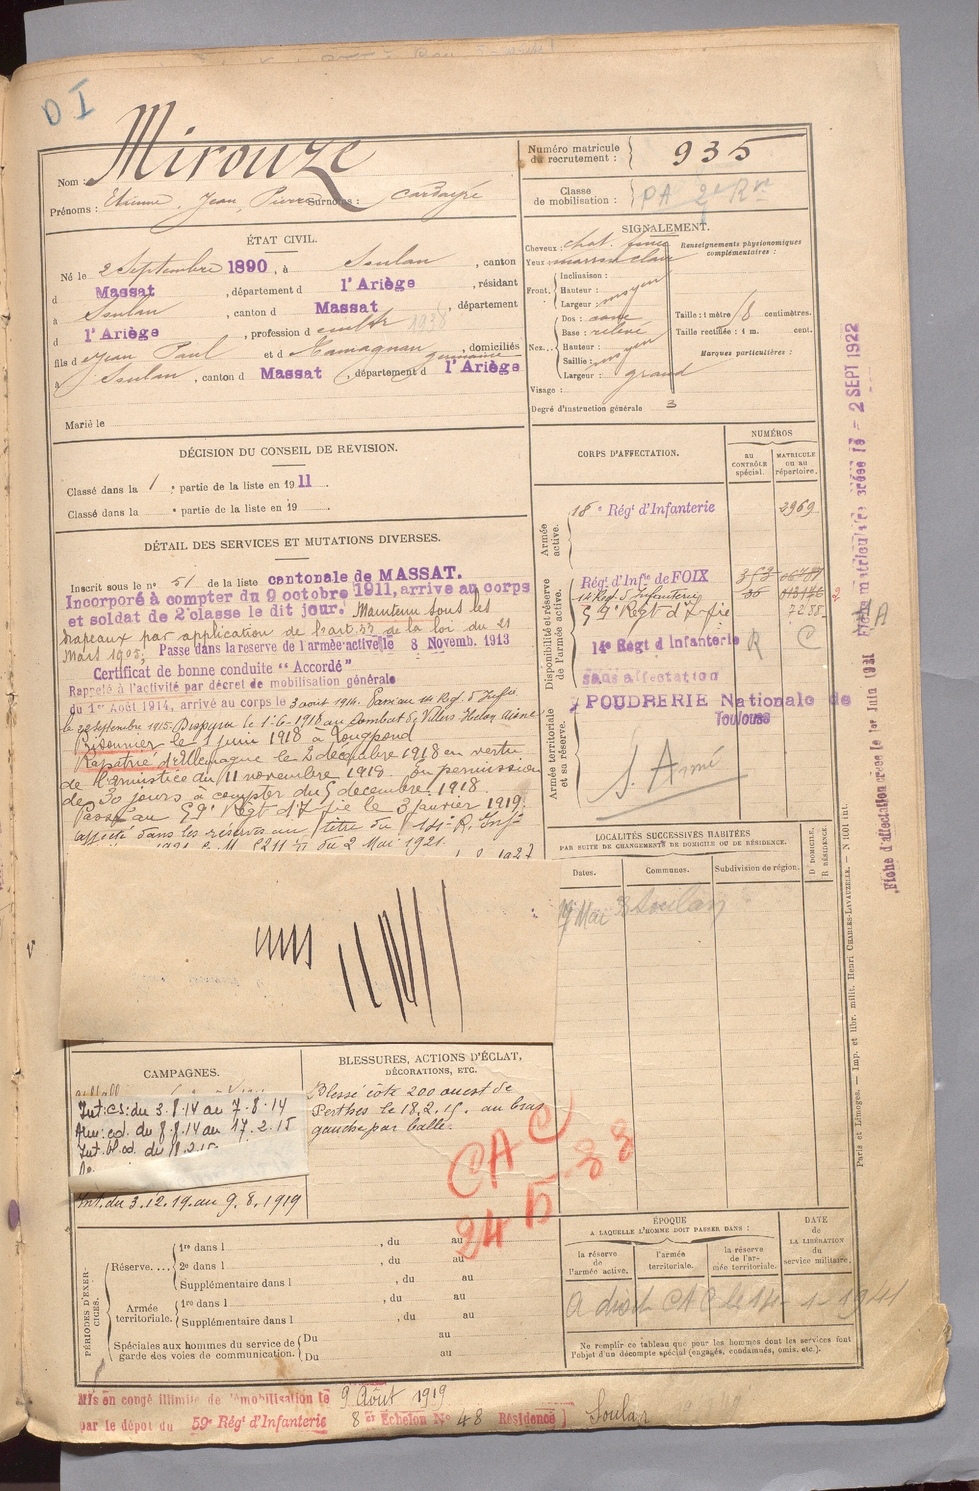 D I
Nom : Mirouze
Prénoms : Etienne, Jean, Pierre Surnoms : Cardayre
Numéro matricule du recrutement : 935
Classe de mobilisation : PA 2e Rve
ÉTAT CIVIL.
Né le 2 Septembre 1890, à Soulan, canton
d Massat, département d l'Ariège, résidant
à Soulan, canton d Massat, département
d l'Ariège, profession d cultr 1938
fils d e Jean Paul et d Mamagnan germaine, domiciliés
à Soulan, canton d Massat, département d l'Ariège
Marié le
SIGNALEMENT.
Cheveux : chat. foncé
Yeux : marron clair
Front. Inclinaison :
Hauteur :
Largeur : moyen
Nez... Dos : cave
Base : relevé
Hauteur :
Saillie : moyen
Largeur : grand
Visage :
Degré d'instruction générale 3
Renseignements physionomiques complémentaires :
Taille : 1 mètre 78 centimètres.
Taille rectifiée : 1 m. cent.
Marques particulières :
DÉCISION DU CONSEIL DE REVISION.
Classé dans la 1 e partie de la liste en 1911
Classé dans la e partie de la liste en 19
DÉTAIL DES SERVICES ET MUTATIONS DIVERSES.
Inscrit sous le n° 51 de la liste cantonale de MASSAT.
Incorporé à compter du 9 octobre 1911, arrive au corps
et soldat de 2e classe le dit jour. Maintenu sous les
drapeaux par application de l'art. 33 de la loi du 21
Mars 1905. Passé dans la réserve de l'armée active le 8 Novemb. 1913
Certificat de bonne conduite "Accordé"
Rappelé à l'activité par décret de mobilisation générale
du 1er Août 1914, arrivé au corps le 3 août 1914. Passé au 14 Reg. d'Infie
le 22 septembre 1915. Disparu le 1-6-1918 au combat de Villers Helon Aisne
Prisonnier le 1 juin 1918 à Longpond
Rapatrié d'Allemagne le 2 décembre 1918 en vertu
de l'armistice du 11 novembre 1918. En permission
de 30 jours à compter du 5 décembre 1918.
Passé au 59e Regt d'Ifie le 3 janvier 1919.
affecté dans les réserves au titre du 14e R. Infie
du 2 Mai 1921.
CORPS D'AFFECTATION.
NUMÉROS
AU CONTRÔLE spécial.
MATRICULE ou au répertoire.
Armée active.
18e Régt d'Infanterie 3969
Disponibilité et réserve de l'armée active.
Régt d'Infie de FOIX 353
14 Reg. d'Infanterie
59e Regt d'Ifie 7255
14e Regt d'Infanterie R C
sans affectation
Armée territoriale et sa réserve.
POUDRERIE Nationale de
Toulouse
S. Armé
LOCALITÉS SUCCESSIVES HABITÉES
PAR SUITE DE CHANGEMENTS DE DOMICILE OU DE RÉSIDENCE.
Dates.
Communes.
Subdivision de région.
D. DOMICILE, R. RÉSIDENCE.
Mai 38 Soulan
CAMPAGNES.
Int: CS: du 3.8.14 au 7.8.14
Arm: cd. du 8.8.14 au 17.2.15
Int. bl. cd. du 18.2.15
Int. du 3.12.19. au 9.8.1919
BLESSURES, ACTIONS D'ÉCLAT,
DÉCORATIONS, ETC.
Blessé côte 200 ouest de
Perthes le 18.2.15. au bras
gauche par balle.
CAC
24 5-38
PÉRIODES D'EXERCICES.
Réserve.... 1re dans l , du au
2e dans l , du au
Supplémentaire dans l , du au
Armée territoriale. 1re dans l , du au
Supplémentaire dans l , du au
Spéciales aux hommes du service de garde des voies de communication. Du au
Du au
ÉPOQUE
A LAQUELLE L'HOMME DOIT PASSER DANS :
la réserve de l'armée active.
l'armée territoriale.
la réserve de l'armée territoriale.
DATE de LA LIBÉRATION du service militaire.
A droit CAC le 1-1941
Ne remplir ce tableau que pour les hommes dont les services font
l'objet d'un décompte spécial (engagés, condamnés, omis, etc.).
Mis en congé illimité de démobilisation le 9 Août 1919
par le dépôt du 59e Régt d'Infanterie 8 er Echelon No 48 Résidence Soulan
Paris et Limoges. — Imp. et libr. milit. Henri CHARLES-LAVAUZELLE. — N° 1001 int.
Fiche d'affectation créée le 1er Juin 1921
Fiche matriculaire créée le - 2 SEPT 1922